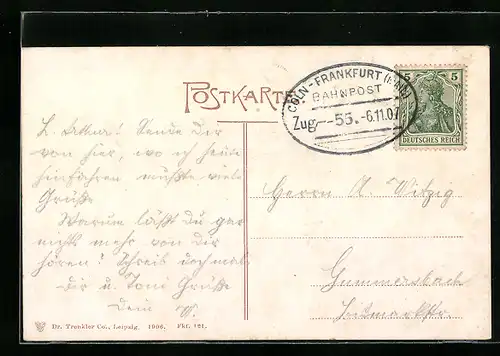 POSTKARTE
CÖLN-FRANKFURT
BAHNPOST
Zug 55. 6.11.07
5 5
DEUTSCHES REICH
L. Arthur! Sende Dir
von hier, wo ich heute
hinfahren mußte viele
Grüße
Warum läßt Du gar
nichts mehr von Dir
hören? Schreib doch mal
Dir u. Toni Grüße
Dein W.
Herrn A. Witzig
Gummersbach
Bismarckstr.
Dr. Trenkler Co., Leipzig. 1906. Fkf. 121.